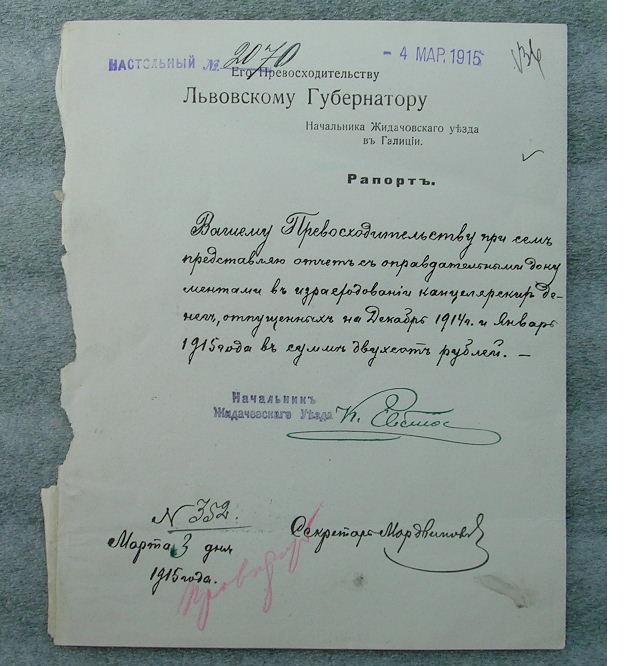 НАСТОЛЬНЫЙ № 2070
- 4 МАР. 1915
Его Превосходительству
Львовскому Губернатору
Начальника Жидачовскаго уѣзда
въ Галиціи.
Рапортъ.
Вашему Превосходительству при семъ
представляю отчетъ съ оправдательными доку
ментами въ израсходованіи канцелярскихъ де-
негъ, отпущенныхъ на Декабрь 1914г. и Январь
1915 года въ суммѣ двухсотъ рублей. —
Начальникъ
Жидачевскаго Уѣзда К.
N 352.
Секретарь Мордвиновъ
Марта 3 дня
1915 года.